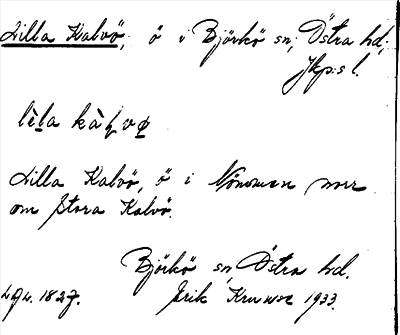 Lilla Kalvö, ö i Björkö sn, Östra hd,
Jkp:s l.
Lilla Kalvö, ö i Nömmen norr
om Stora Kalvö.
Björkö sn Östra hd.
Erik 1933.